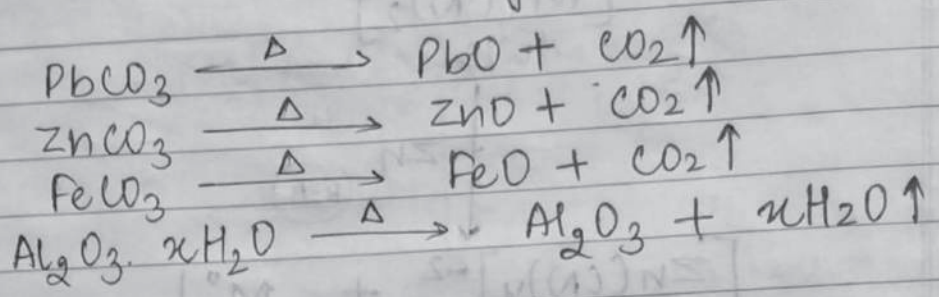 PbCO3 —Δ→ PbO + CO2↑
ZnCO3 —Δ→ ZnO + CO2↑
FeCO3 —Δ→ FeO + CO2↑
Al2O3. xH2O —Δ→ Al2O3 + xH2O↑